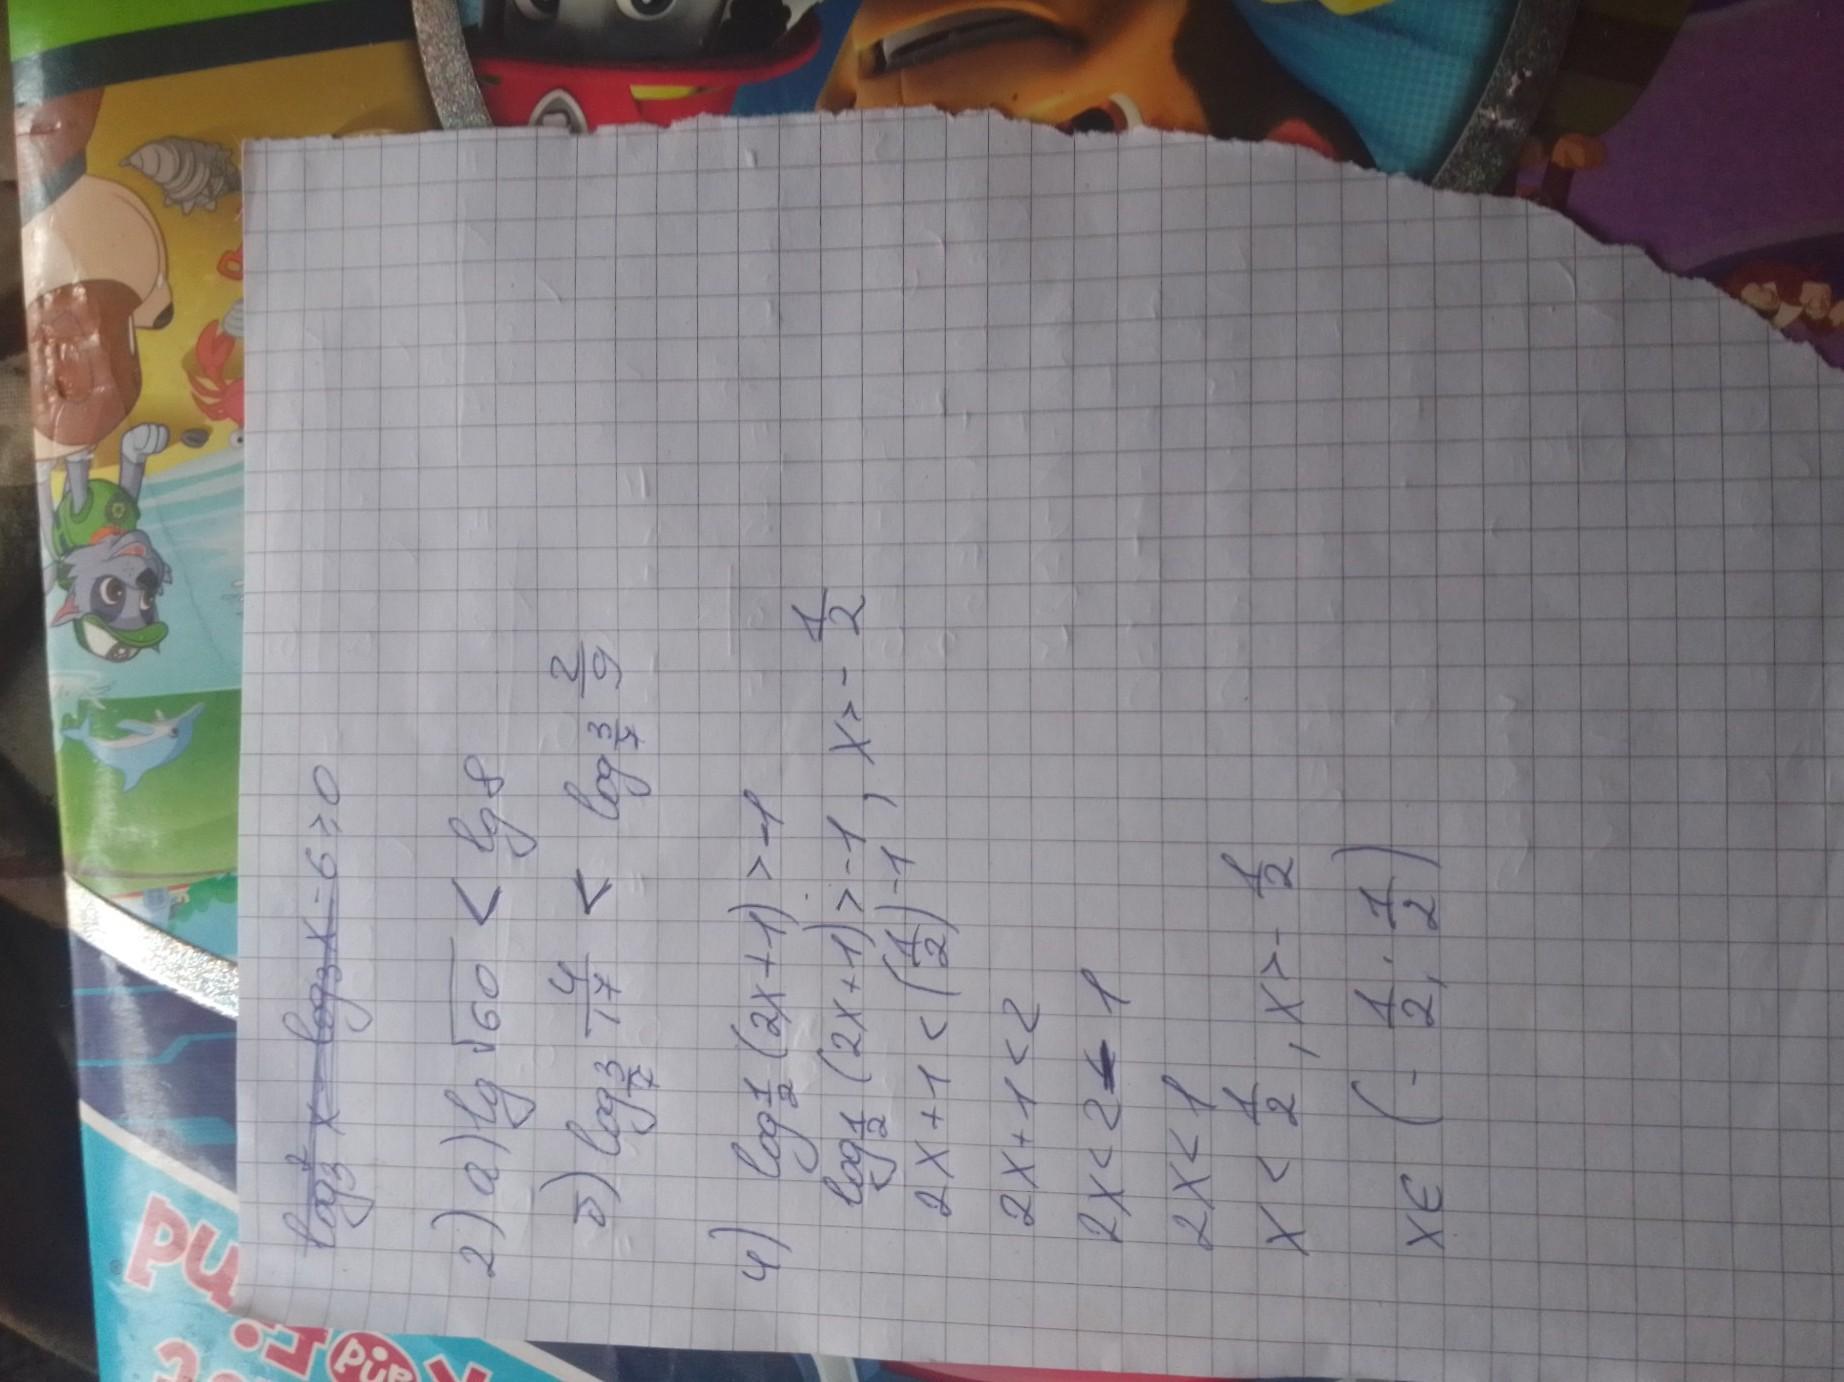 log₃² x - log₃ x - 6 ≥ 0
2) а) lg √60 < lg 8
б) log_{3/7} 4/17 < log_{3/7} 2/9
4) log_{1/2} (2x+1) > -1
log_{1/2} (2x+1) > -1, x > -1/2
2x+1 < (1/2)^{-1}
2x+1 < 2
2x < 2 - 1
2x < 1
x < 1/2, x > -1/2
x ∈ (-1/2; 1/2)